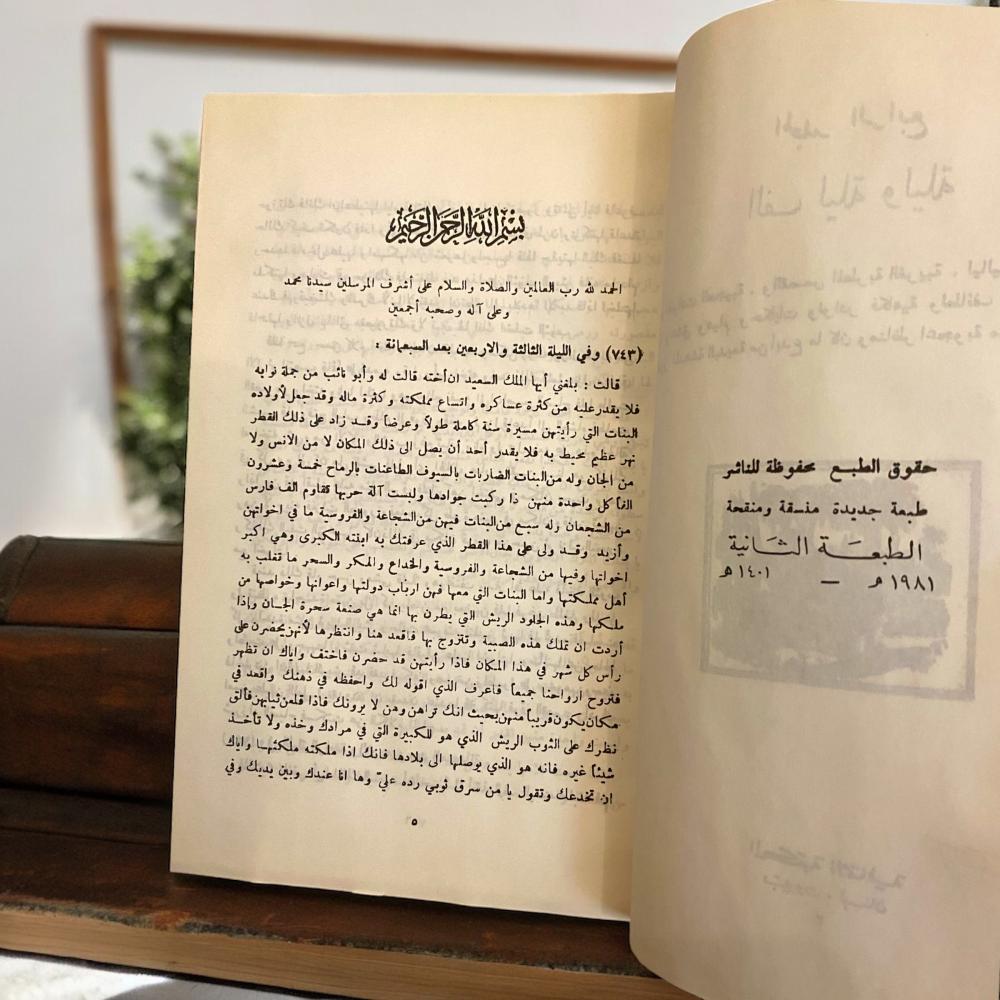 حقوق الطبع محفوظة للناشر
طبعة جديدة منسقة ومنقحة
الطبعة الثانية
١٩٨١ م — ١٤٠١ هـ
بسم الله الرحمن الرحيم
الحمد لله رب العالمين والصلاة والسلام على أشرف المرسلين سيدنا محمد
وعلى آله وصحبه أجمعين
(٧٤٣) وفي الليلة الثالثة والاربعين بعد السبعمائة :
قالت : بلغني أيها الملك السعيد ان أخته قالت له وأبو نائب من جملة نوابه
فلا يقدر عليه من كثرة عساكره واتساع مملكته وكثرة ماله وقد جعل لأولاده
البنات التي رأيتهن مسيرة سنة كاملة طولاً وعرضاً وقد زاد على ذلك القطر
نهر عظيم محيط به فلا يقدر أحد أن يصل الى ذلك المكان لا من الانس ولا
من الجان وله من البنات الضاربات بالسيوف الطاعنات بالرماح خمسة وعشرون
الفاً كل واحدة منهن ذا ركبت جوادها ولبست آلة حربها تقاوم الف فارس
من الشجعان وله سبع من البنات فيهن من الشجاعة والفروسية ما في اخواتهن
وأزيد وقد ولى على هذا القطر الذي عرفتك به ابنته الكبرى وهي اكبر
اخواتها وفيها من الشجاعة والفروسية والخداع والمكر والسحر ما تغلب به
أهل مملكتها واما البنات التي معها فهن ارباب دولتها واعوانها وخواصها من
ملكها وهذه الجلود الريش التي يطرن بها انما هي صنعة سحرة الجان وإذا
أردت ان تملك هذه الصبية وتتزوج بها فاقعد هنا وانتظرها لأنهن يحضرن على
رأس كل شهر في هذا المكان فاذا رأيتهن قد حضرن فاختف واياك ان تظهر
فتروح ارواحنا جميعاً فاعرف الذي اقوله لك واحفظه في ذهنك واقعد في
مكان يكون قريباً منهن بحيث انك تراهن وهن لا يرونك فاذا قلعن ثيابهن فألق
نظرك على الثوب الريش الذي هو للكبيرة التي في مرادك وخذه ولا تأخذ
شيئاً غيره فانه هو الذي يوصلها الى بلادها فانك اذا ملكته ملكتها واياك
ان تخدعك وتقول يا من سرق ثوبي رده عليّ وها انا عندك وبين يديك وفي
٥